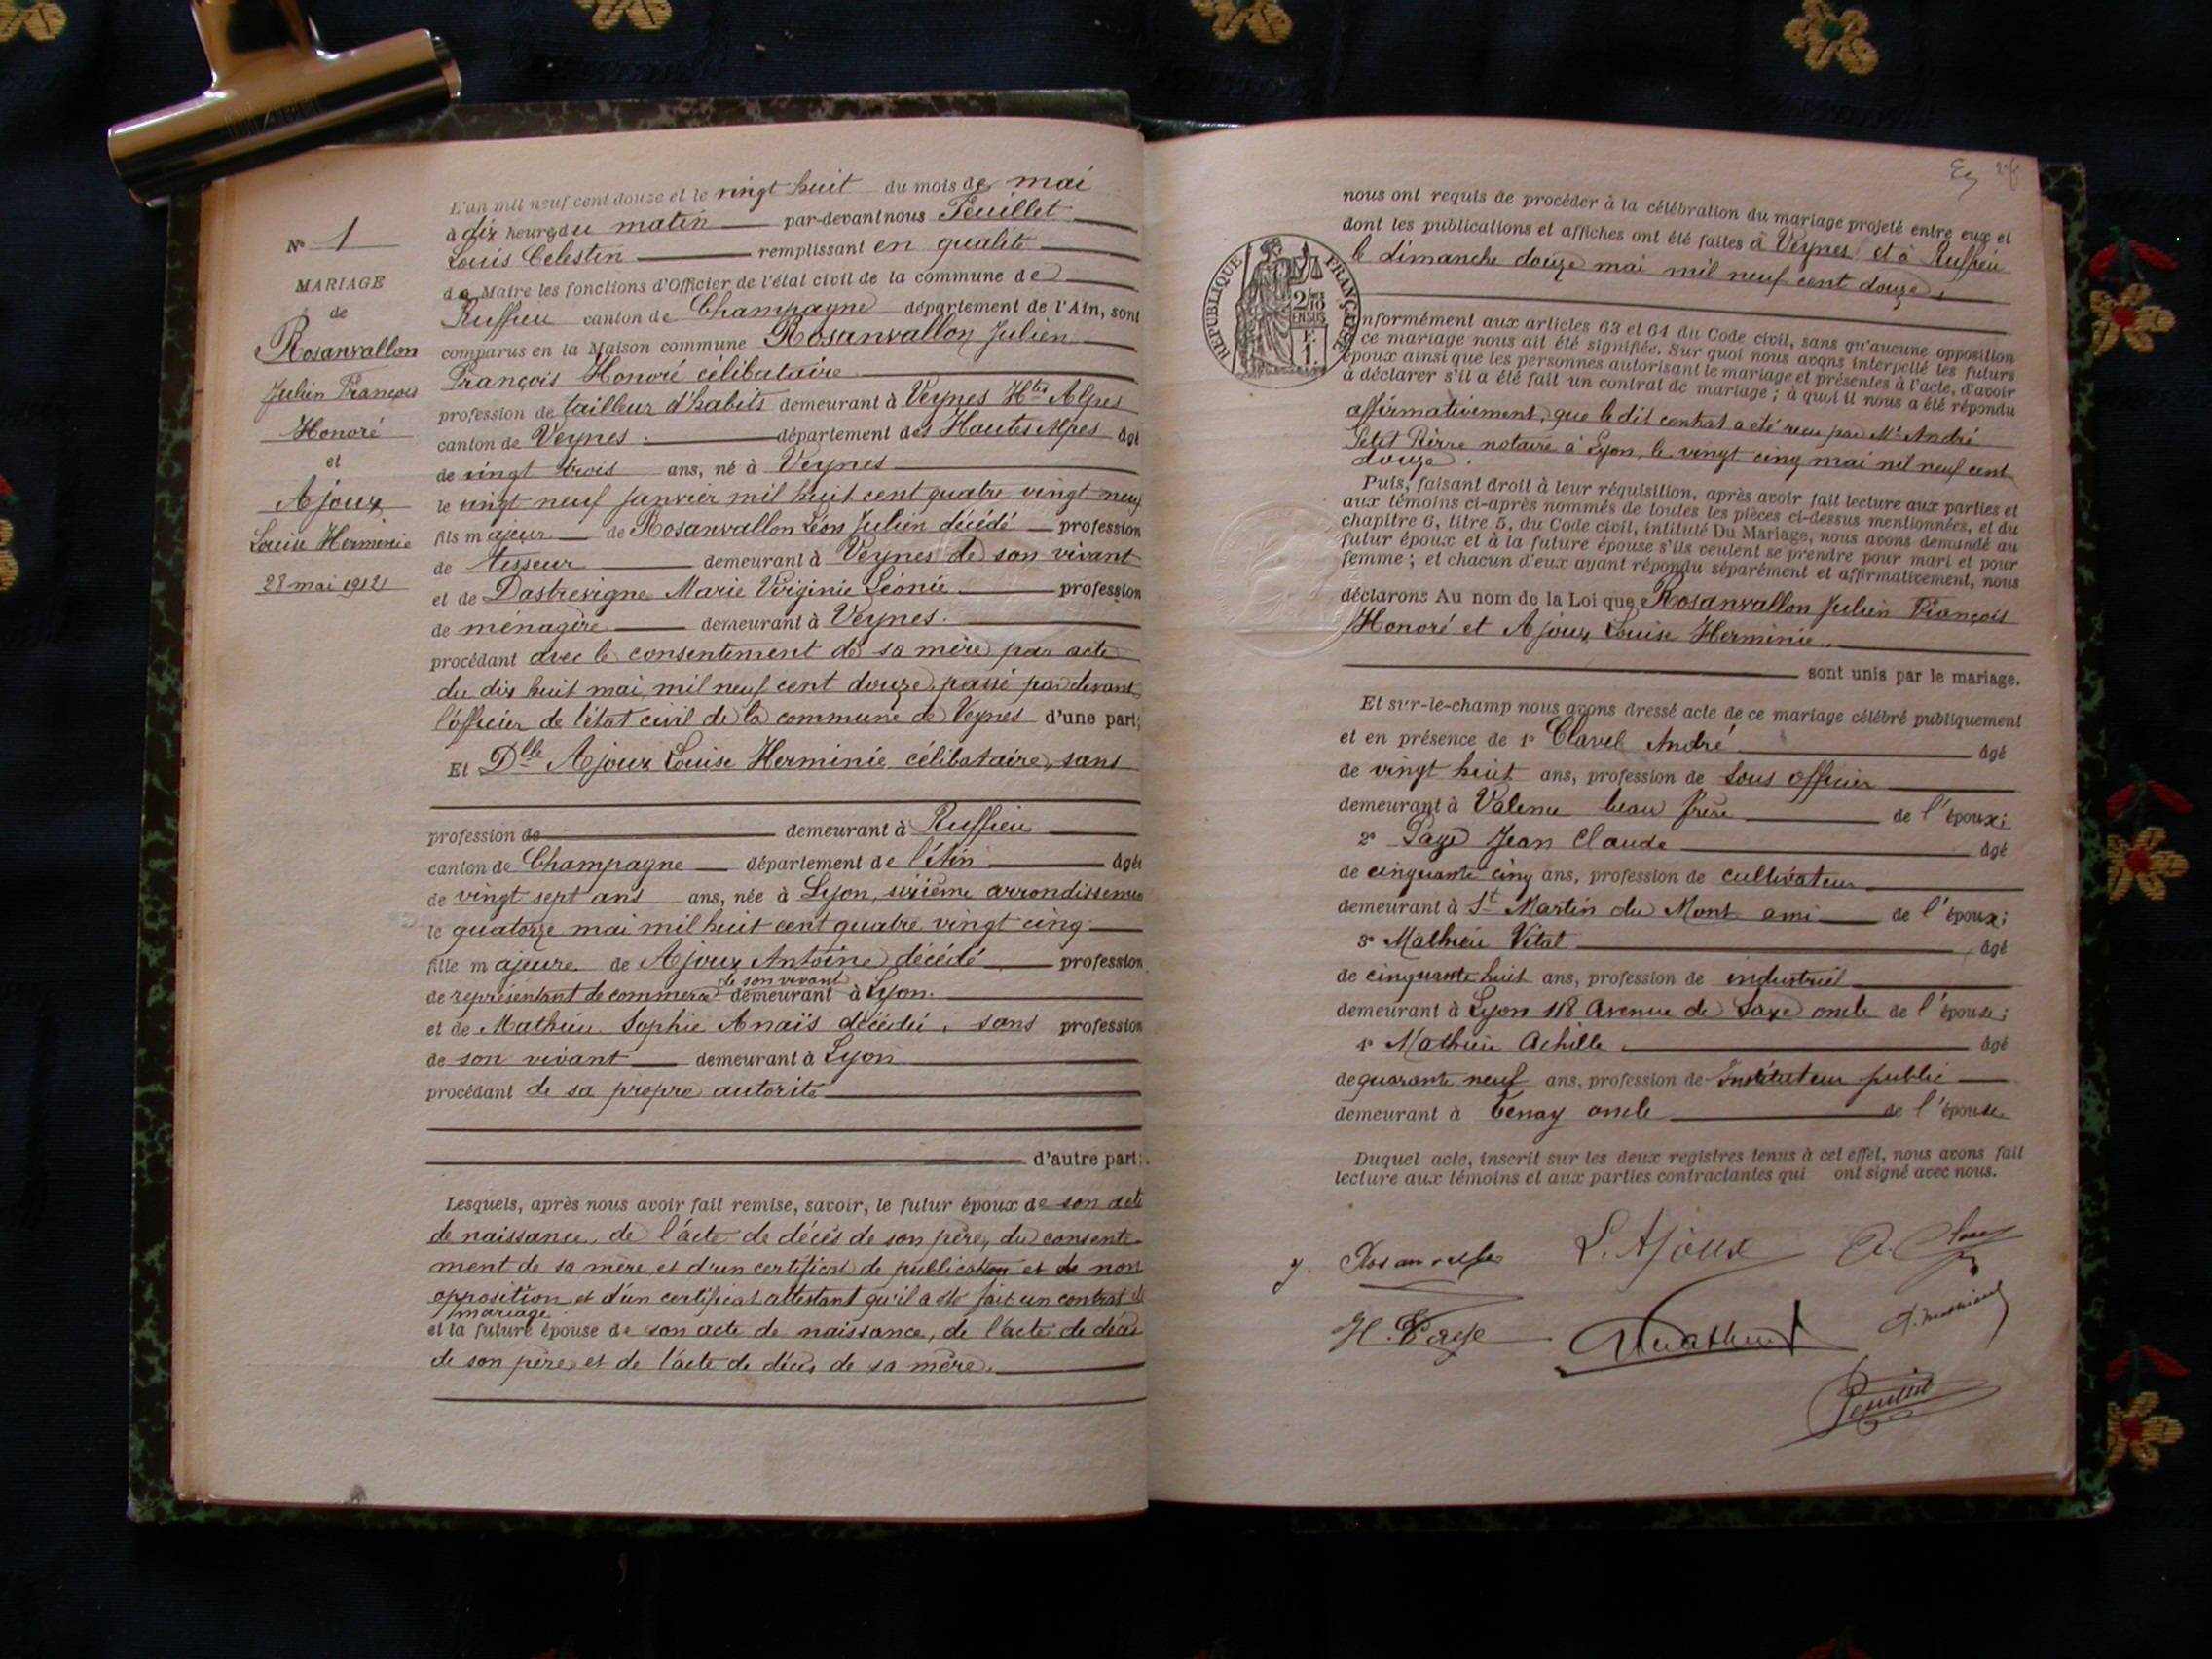 N° 1
MARIAGE
de
Rosanvallon
Julien François
Honoré
et
Ajoux
Louise Herminie
28 mai 1912
L'an mil neuf cent douze et le vingt huit du mois de mai
à dix heures du matin par-devant nous Feuillet
Louis Célestin remplissant en qualité
de Maire les fonctions d'Officier de l'état civil de la commune de
Ruffieu canton de Champagne département de l'Ain, sont
comparus en la Maison commune Rosanvallon Julien
François Honoré célibataire
profession de tailleur d'habits demeurant à Veynes Htes Alpes
canton de Veynes. département des Hautes Alpes âgé
de vingt trois ans, né à Veynes
le vingt neuf janvier mil huit cent quatre vingt neuf
fils majeur de Rosanvallon Léon Julien décédé profession
de tisseur demeurant à Veynes de son vivant
et de Dastrevigne Marie Virginie Léonie profession
de ménagère demeurant à Veynes.
procédant avec le consentement de sa mère par acte
du dix huit mai mil neuf cent douze, passé par devant
l'officier de l'état civil de la commune de Veynes d'une part;
Et Dlle Ajoux Louise Herminie célibataire, sans
profession de demeurant à Ruffieu
canton de Champagne département de l'Ain âgée
de vingt sept ans ans, née à Lyon, sixième arrondisseme
le quatorze mai mil huit cent quatre vingt cinq
fille majeure de Ajoux Antoine décédé profession
de son vivant
de représentant de commerce demeurant à Lyon.
et de Mathieu Sophie Anaïs décédée, sans profession
de son vivant demeurant à Lyon
procédant de sa propre autorité
d'autre part;
Lesquels, après nous avoir fait remise, savoir, le futur époux de son acte
de naissance, de l'acte de décès de son père, du consente
ment de sa mère, et d'un certificat de publication et de non
opposition et d'un certificat attestant qu'il a été fait un contrat de
mariage.
et la future épouse de son acte de naissance, de l'acte de décès
de son père et de l'acte de décès de sa mère.
nous ont requis de procéder à la célébration du mariage projeté entre eux et
dont les publications et affiches ont été faites à Veynes et à Ruffieu
le dimanche douze mai mil neuf cent douze,
REPUBLIQUE FRANÇAISE
2/10 EN SUS
F. 1.
nformément aux articles 63 et 64 du Code civil, sans qu'aucune opposition
ce mariage nous ait été signifiée. Sur quoi nous avons interpellé les futurs
époux ainsi que les personnes autorisant le mariage et présentes à l'acte, d'avoir
à déclarer s'il a été fait un contrat de mariage; à quoi il nous a été répondu
affirmativement, que le dit contrat a été reçu par Me André
Petit Pierre notaire à Lyon, le vingt cinq mai mil neuf cent
douze.
Puis, faisant droit à leur réquisition, après avoir fait lecture aux parties et
aux témoins ci-après nommés de toutes les pièces ci-dessus mentionnées, et du
chapitre 6, titre 5, du Code civil, intitulé Du Mariage, nous avons demandé au
futur époux et à la future épouse s'ils veulent se prendre pour mari et pour
femme; et chacun d'eux ayant répondu séparément et affirmativement, nous
déclarons Au nom de la Loi que Rosanvallon Julien François
Honoré et Ajoux Louise Herminie.
sont unis par le mariage.
Et sur-le-champ nous avons dressé acte de ce mariage célébré publiquement
et en présence de 1° Clavel André âgé
de vingt huit ans, profession de sous officier
demeurant à Valence beau frère de l'époux;
2° Page Jean Claude âgé
de cinquante cinq ans, profession de cultivateur
demeurant à St Martin du Mont ami de l'époux;
3° Mathieu Vital âgé
de cinquante huit ans, profession de industriel
demeurant à Lyon 118 Avenue de Saxe oncle de l'épouse;
4° Mathieu Achille âgé
de quarante neuf ans, profession de Instituteur public
demeurant à Tenay oncle de l'épouse
Duquel acte, inscrit sur les deux registres tenus à cet effet, nous avons fait
lecture aux témoins et aux parties contractantes qui ont signé avec nous.
L. Ajoux
Feuillet